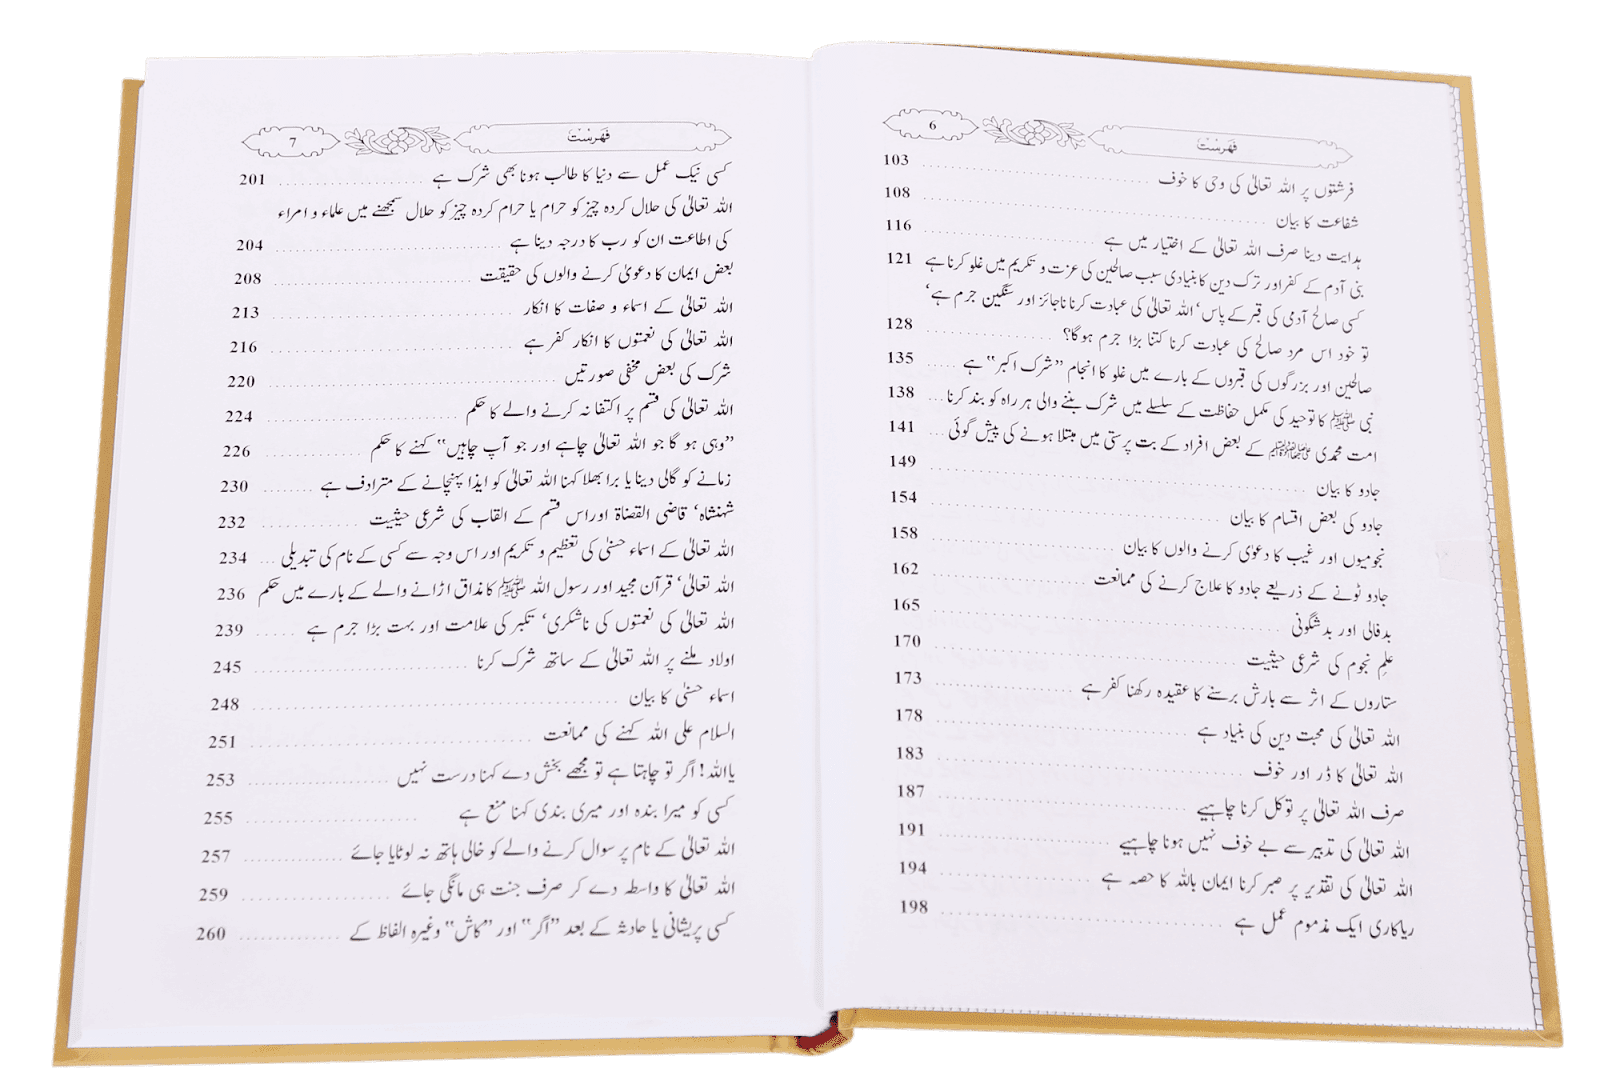 فهرست 6
فرشتوں پر اللہ تعالیٰ کی وحی کا خوف 103
شفاعت کا بیان 108
ہدایت دینا صرف اللہ تعالیٰ کے اختیار میں ہے 116
بنی آدم کے کفر اور ترک دین کا بنیادی سبب صالحین کی عزت و تکریم میں غلو کرنا ہے 121
کسی صالح آدمی کی قبر کے پاس‘ اللہ تعالیٰ کی عبادت کرنا ناجائز اور سنگین جرم ہے‘
تو خود اس مرد صالح کی عبادت کرنا کتنا بڑا جرم ہوگا؟ 128
صالحین اور بزرگوں کی قبروں کے بارے میں غلو کا انجام ”شرک اکبر“ ہے 135
نبی ﷺ کا توحید کی مکمل حفاظت کے سلسلے میں شرک بننے والی ہر راہ کو بند کرنا 138
امت محمدی ﷺ کے بعض افراد کے بت پرستی میں مبتلا ہونے کی پیش گوئی 141
جادو کا بیان 149
جادو کی بعض اقسام کا بیان 154
نجومیوں اور غیب کا دعوٰی کرنے والوں کا بیان 158
جادو ٹونے کے ذریعے جادو کا علاج کرنے کی ممانعت 162
بدفالی اور بدشگونی 165
علمِ نجوم کی شرعی حیثیت 170
ستاروں کے اثر سے بارش برسنے کا عقیدہ رکھنا کفر ہے 173
اللہ تعالیٰ کی محبت دین کی بنیاد ہے 178
اللہ تعالیٰ کا ڈر اور خوف 183
صرف اللہ تعالیٰ پر توکل کرنا چاہیے 187
اللہ تعالیٰ کی تدبیر سے بے خوف نہیں ہونا چاہیے 191
اللہ تعالیٰ کی تقدیر پر صبر کرنا ایمان باللہ کا حصہ ہے 194
ریاکاری ایک مذموم عمل ہے 198
فهرست 7
کسی نیک عمل سے دنیا کا طالب ہونا بھی شرک ہے 201
اللہ تعالیٰ کی حلال کردہ چیز کو حرام یا حرام کردہ چیز کو حلال سمجھنے میں علماء و امراء
کی اطاعت ان کو رب کا درجہ دینا ہے 204
بعض ایمان کا دعویٰ کرنے والوں کی حقیقت 208
اللہ تعالیٰ کے اسماء و صفات کا انکار 213
اللہ تعالیٰ کی نعمتوں کا انکار کفر ہے 216
شرک کی بعض مخفی صورتیں 220
اللہ تعالیٰ کی قسم پر اکتفا نہ کرنے والے کا حکم 224
”وہی ہو گا جو اللہ تعالیٰ چاہے اور جو آپ چاہیں“ کہنے کا حکم 226
زمانے کو گالی دینا یا برا بھلا کہنا اللہ تعالیٰ کو ایذا پہنچانے کے مترادف ہے 230
شہنشاہ‘ قاضی القضاۃ اور اس قسم کے القاب کی شرعی حیثیت 232
اللہ تعالیٰ کے اسماء حسنیٰ کی تعظیم و تکریم اور اس وجہ سے کسی کے نام کی تبدیلی 234
اللہ تعالیٰ‘ قرآن مجید اور رسول اللہ ﷺ کا مذاق اڑانے والے کے بارے میں حکم 236
اللہ تعالیٰ کی نعمتوں کی ناشکری‘ تکبر کی علامت اور بہت بڑا جرم ہے 239
اولاد ملنے پر اللہ تعالیٰ کے ساتھ شرک کرنا 245
اسماء حسنیٰ کا بیان 248
السلام علی اللہ کہنے کی ممانعت 251
یااللہ! اگر تو چاہتا ہے تو مجھے بخش دے کہنا درست نہیں 253
کسی کو میرا بندہ اور میری بندی کہنا منع ہے 255
اللہ تعالیٰ کے نام پر سوال کرنے والے کو خالی ہاتھ نہ لوٹایا جائے 257
اللہ تعالیٰ کا واسطہ دے کر صرف جنت ہی مانگی جائے 259
کسی پریشانی یا حادثہ کے بعد ”اگر“ اور ”کاش“ وغیرہ الفاظ کے 260